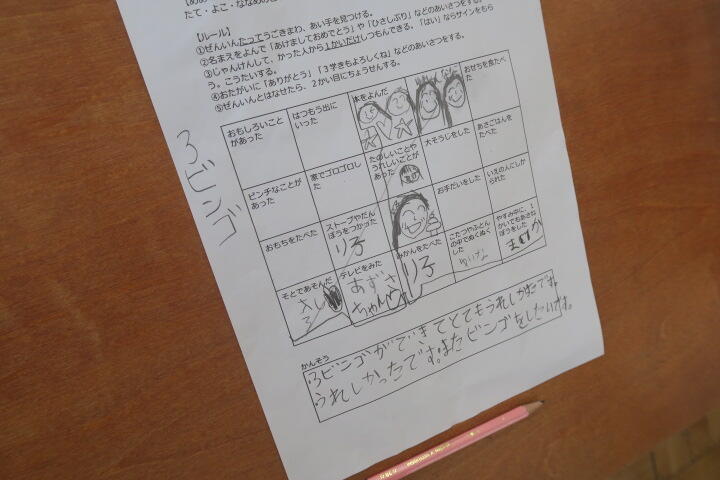 たて・よこ・ななめの
【ルール】
①ぜんいんたってうごきまわ、あい手を見つける。
②名まえをよんで「あけましておめでとう」や「ひさしぶり」などのあいさつをする。
③じゃんけんして、かった人から1かいだけしつもんできる。「はい」ならサインをもら
う。こうたいする。
④おたがいに「ありがとう」「3学きもよろしくね」などのあいさつをする。
⑤ぜんいんとはなせたら、2かい目にちょうせんする。
おもしろいことがあった
はつもう出にいった
本をよんだ
おせちを食べた
ピンチなことがあった
家でゴロゴロした
たのしいことやうれしいことがあった
大そうじをした
あさごはんをたべた
おもちをたべた
ストーブやだんぼうをつかった
り子
お手だいをした
いえの人にしかられた
そとであそんだ
テレビをみた
あずさ
ちゃん
みかんをたべた
り子
こたつやふとんの中でぬくぬくした
やすみ中に、1かいでもあさねぼうをした
3ビンゴ
かんそう
3ビンゴができてとてもうれしかたです。
うれしかったです。またビンゴをしたいです。